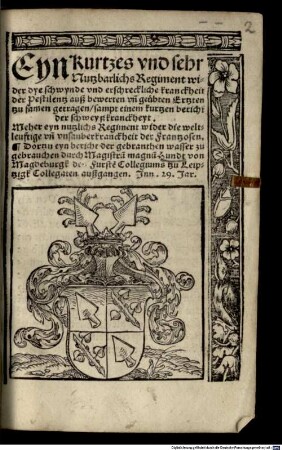 2
Eyn Kurtzes vnd sehr
Nutzbarlichs Regiment wi-
der dye schwynde vnd erschreckliche kranckheit
der Pestilentz auß bewerten vñ geübten Ertzten
tzu samen getragen/ sampt einem kurtzen bericht
der schweyßkranckheyt.
Meher eyn nutzlichs Regiment wider die weit
leufftige vñ vnsauber kranckheit der Frantzosen.
¶ Dortzu eyn bericht der gebranthen wasser zu
gebrauchen durch Magistrũ magnũ Hundt von
Magdeburgk des Fursten Collegiums tzu Leip-
tzigk Collegaten außgangen. Jnn. 29. Jar.